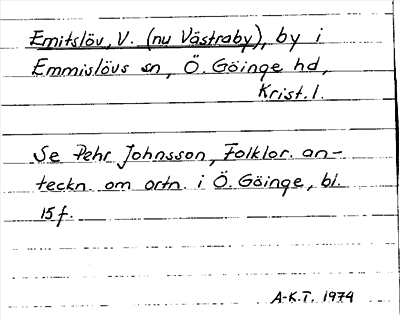 Emitslöv, V. (nu Västraby), by i
Emmislövs sn, Ö. Göinge hd,
Krist. l.
Se Pehr Johnsson, Folklor. an-
teckn. om ortn. i Ö. Göinge, bl.
15 f.
A-K.T. 1974